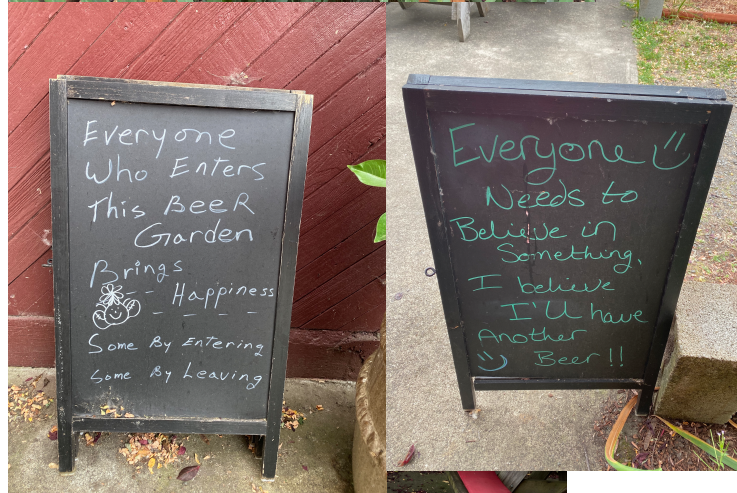 Everyone
Who Enters
This BeeR
Garden
Brings
Happiness
Some By Entering
Some By Leaving
Everyone
Needs to
Believe in
Something,
I believe
I'll have
Another
Beer!!